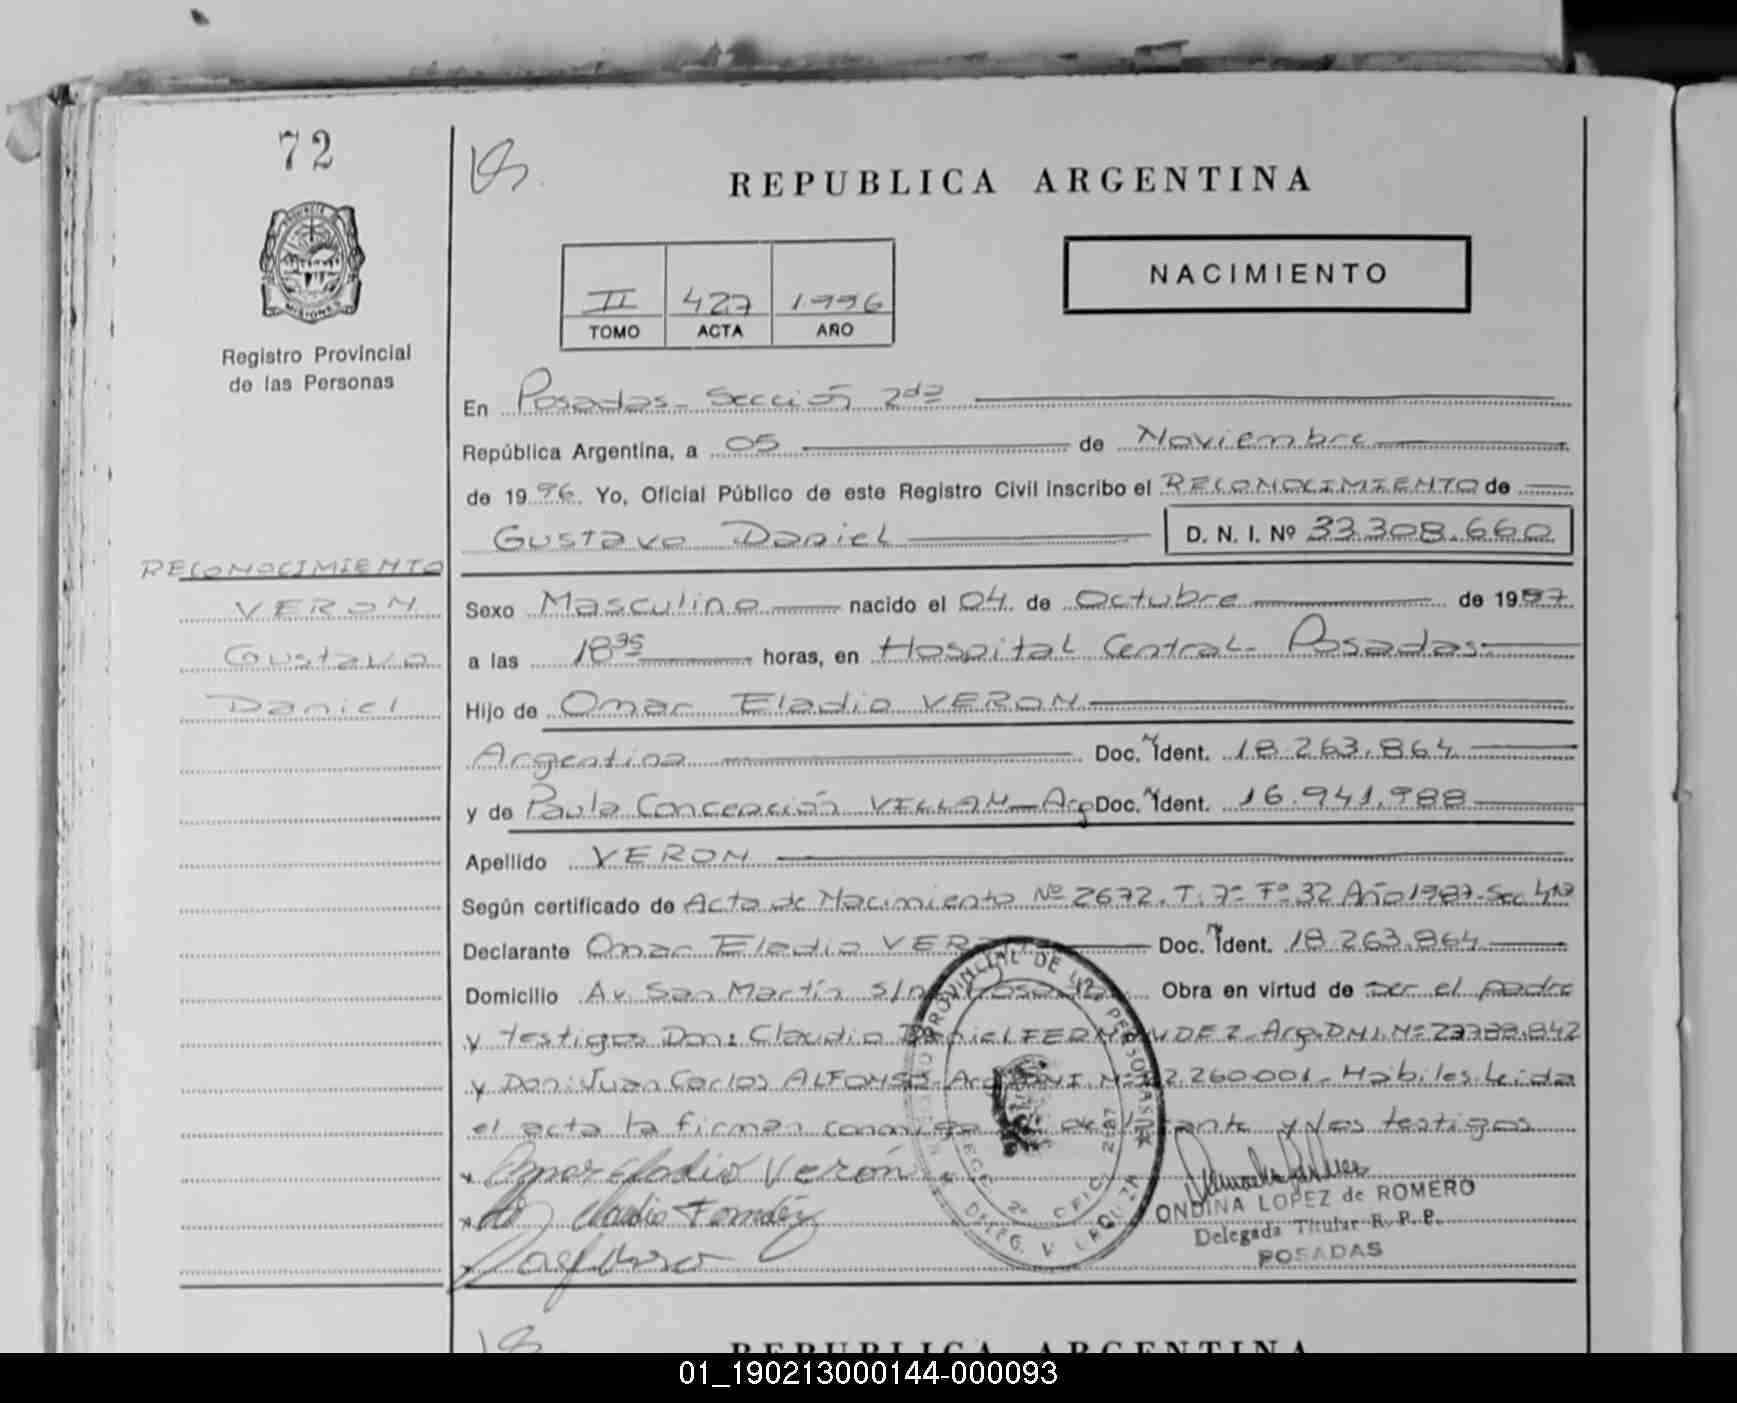 72
REPUBLICA ARGENTINA
PROVINCIA DE MISIONES
Registro Provincial
de las Personas
II 427 1996
TOMO ACTA AÑO
NACIMIENTO
En Posadas - Sección 2da
República Argentina, a 05 de Noviembre
de 1996. Yo, Oficial Público de este Registro Civil inscribo el RECONOCIMIENTO de
Gustavo Daniel D. N. I. Nº 33.308.660
RECONOCIMIENTO
VERON
Gustavo
Daniel
Sexo Masculino nacido el 04 de Octubre de 1987
a las 18 35 horas, en Hospital Central - Posadas
Hijo de Omar Eladio VERON
Argentina Doc. Ident. 18.263.864
y de Paula Concepción Arg Doc. Ident. 16.941.988
Apellido VERON
Según certificado de Acta de Nacimiento Nº 2672. T: 7º Fº 32 Año 1987. Sec 4ta
Declarante Omar Eladio VERON Doc. Ident. 18.263.864
Domicilio Av. San Martín s/nº Posadas. Obra en virtud de ser el padre
y testigos Don: Claudio Daniel FERNANDEZ - Arg. D.N.I. Nº
y Don: Juan Carlos ALFONSO - Arg. DNI. Nº 260.001 - Hábiles. Leida
el acta la firman conmigo el declarante y los testigos
Omar Eladio Verón
Claudio
REGISTRO PROVINCIAL DE LAS PERSONAS
DELEG. V. URQUIZA
SECC. 2ª OFIC. 2287
ONDINA LOPEZ de ROMERO
Delegada Titular R. P. P.
POSADAS
REPUBLICA ARGENTINA
01_190213000144-000093